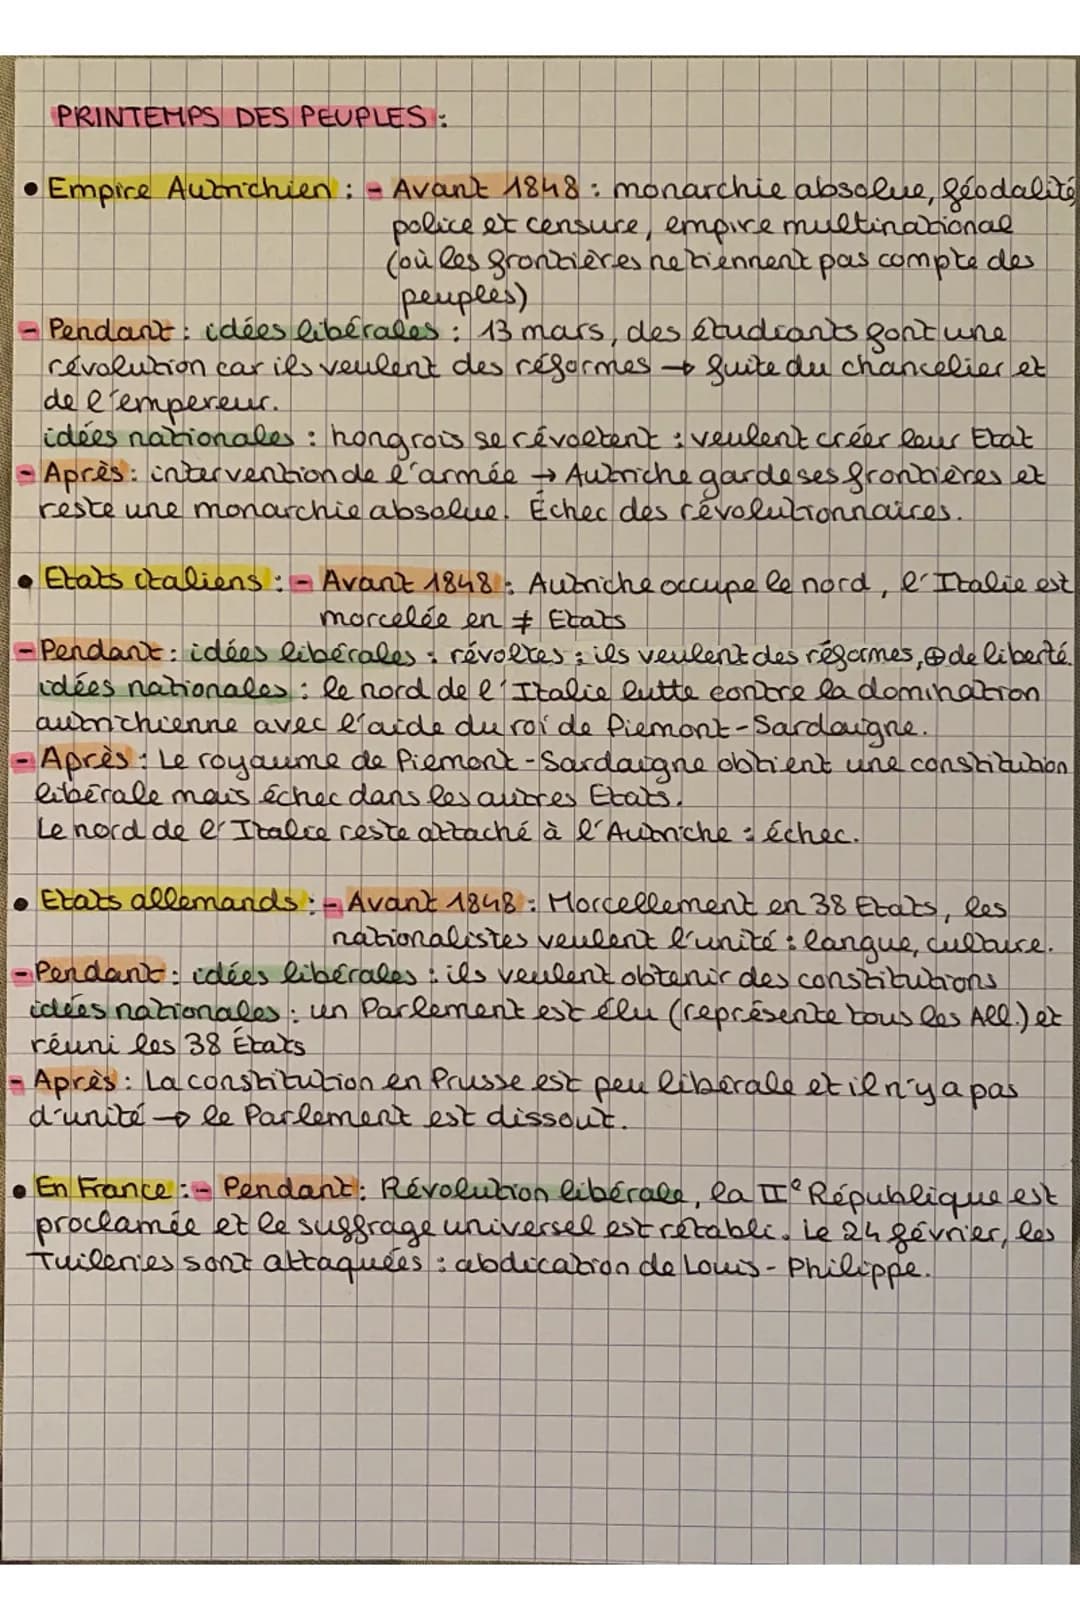 PRINTEMPS DES PEUPLES :
• Empire Autrichien : - Avant 1848 : monarchie absolue, féodalité,
police et censure, empire multinational
(où les frontières ne tiennent pas compte des
peuples)
- Pendant : idées libérales : 13 mars, des étudiants font une
révolution car ils veulent des réformes → fuite du chancelier et
de l'empereur.
idées nationales : hongrois se révoltent : veulent créer leur Etat
- Après : intervention de l'armée → Autriche garde ses frontières et
reste une monarchie absolue. Échec des révolutionnaires.
• Etats italiens : - Avant 1848 : Autriche occupe le nord, l'Italie est
morcelée en ≠ Etats
- Pendant : idées libérales : révoltes : ils veulent des réformes, ⊕ de liberté.
idées nationales : le nord de l'Italie lutte contre la domination
autrichienne avec l'aide du roi de Piemont-Sardaigne.
- Après : Le royaume de Piemont-Sardaigne obtient une constitution
libérale mais échec dans les autres Etats.
Le nord de l'Italie reste attaché à l'Autriche : échec.
• Etats allemands : - Avant 1848 : Morcellement en 38 Etats, les
nationalistes veulent l'unité : langue, culture.
- Pendant : idées libérales : ils veulent obtenir des constitutions
idées nationales : un Parlement est élu (représente tous les All.) et
réuni les 38 États
- Après : La constitution en Prusse est peu libérale et il n'y a pas
d'unité → le Parlement est dissout.
• En France : - Pendant : Révolution libérale, la IIe République est
proclamée et le suffrage universel est rétabli. Le 24 février, les
Tuileries sont attaquées : abdication de Louis-Philippe.